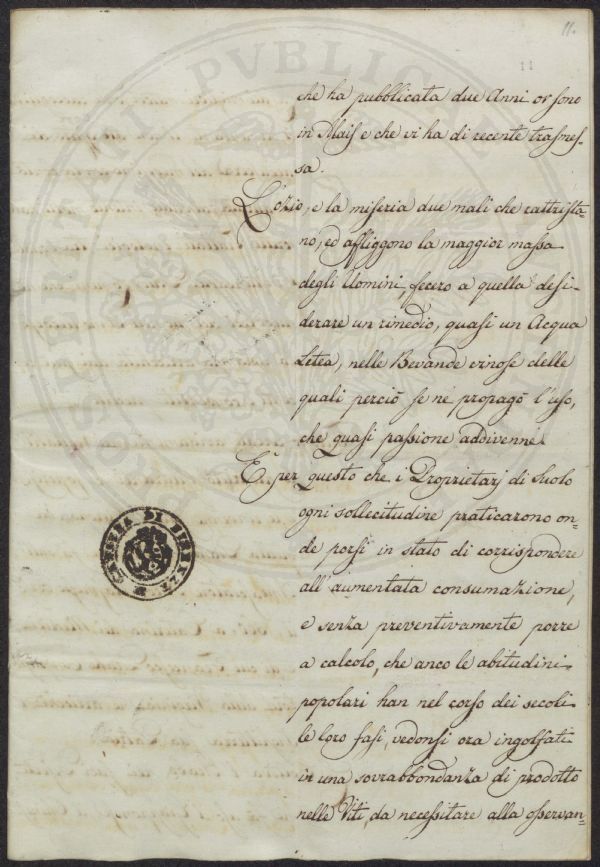 11.
11
che ha pubblicata due Anni or sono
in Mais e che vi ha di recente trasmes-
sa.
L'ozio, e la miseria due mali che rattrista=
no, ed affliggono la maggior massa
degli Uomini, fecero a quella desi-
derare un rimedio, quasi un Acqua
Letea, nelle Bevande vinose delle
quali perciò se nè propagò l'uso,
che quasi passione addivenne.
È per questo che i Proprietarj di suolo
ogni sollecitudine praticarono on=
de porsi in stato di corrispondere
all'aumentata consumazione,
e senza preventivamente porre
a calcolo, che anco le abitudini
popolari han nel corso dei secoli
le loro fasi, vedonsi ora ingolfati
in una sovrabbondanza di prodotto
nelle Viti, da necessitare alla osservan=
PROSPERITATI PVBLICAE
DI FIRENZE